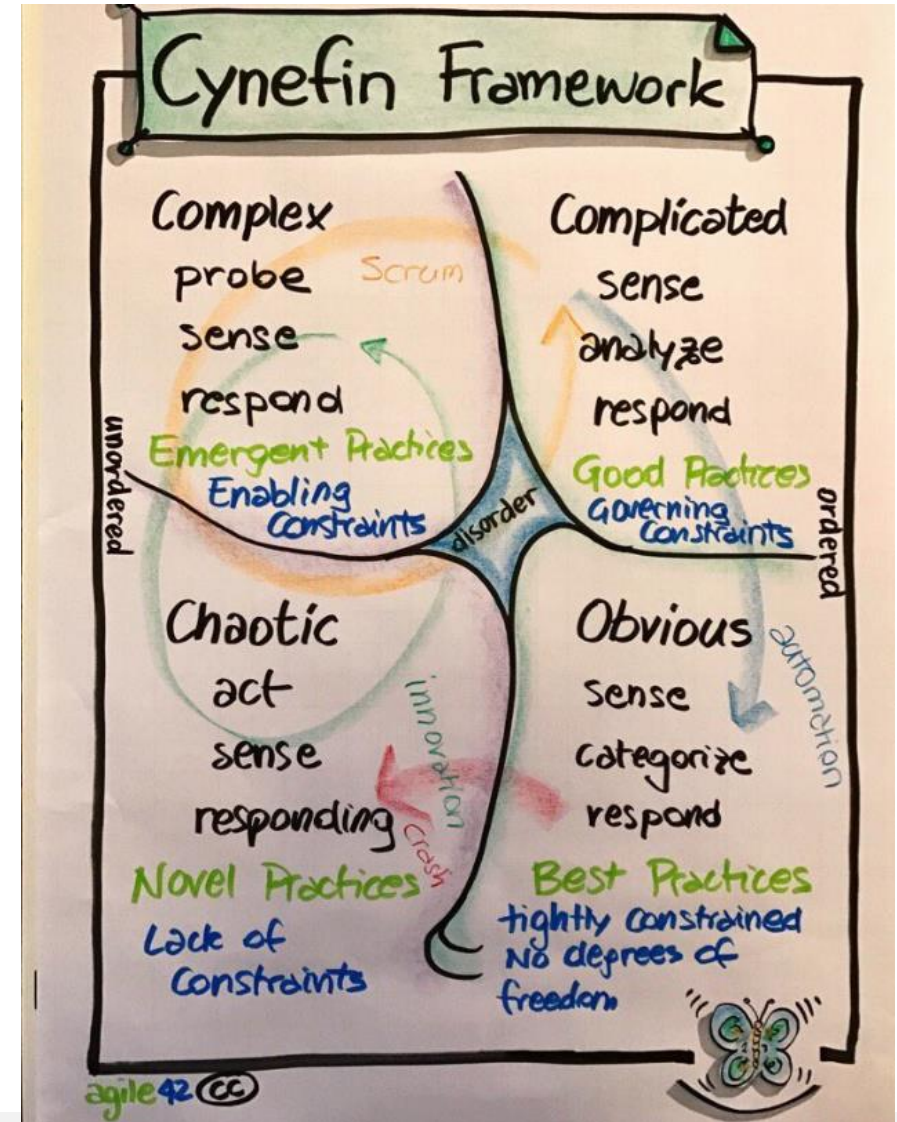 Cynefin Framework
Complex
probe
sense
respond
Emergent Practices
Enabling
Constraints
Scrum
Complicated
sense
analyze
respond
Good Practices
Governing
Constraints
unordered
disorder
ordered
Chaotic
act
sense
responding
Novel Practices
Lack of
Constraints
innovation
crash
Obvious
sense
categorize
respond
Best Practices
tightly constrained
No degrees of
freedom
automation
agile42 cc